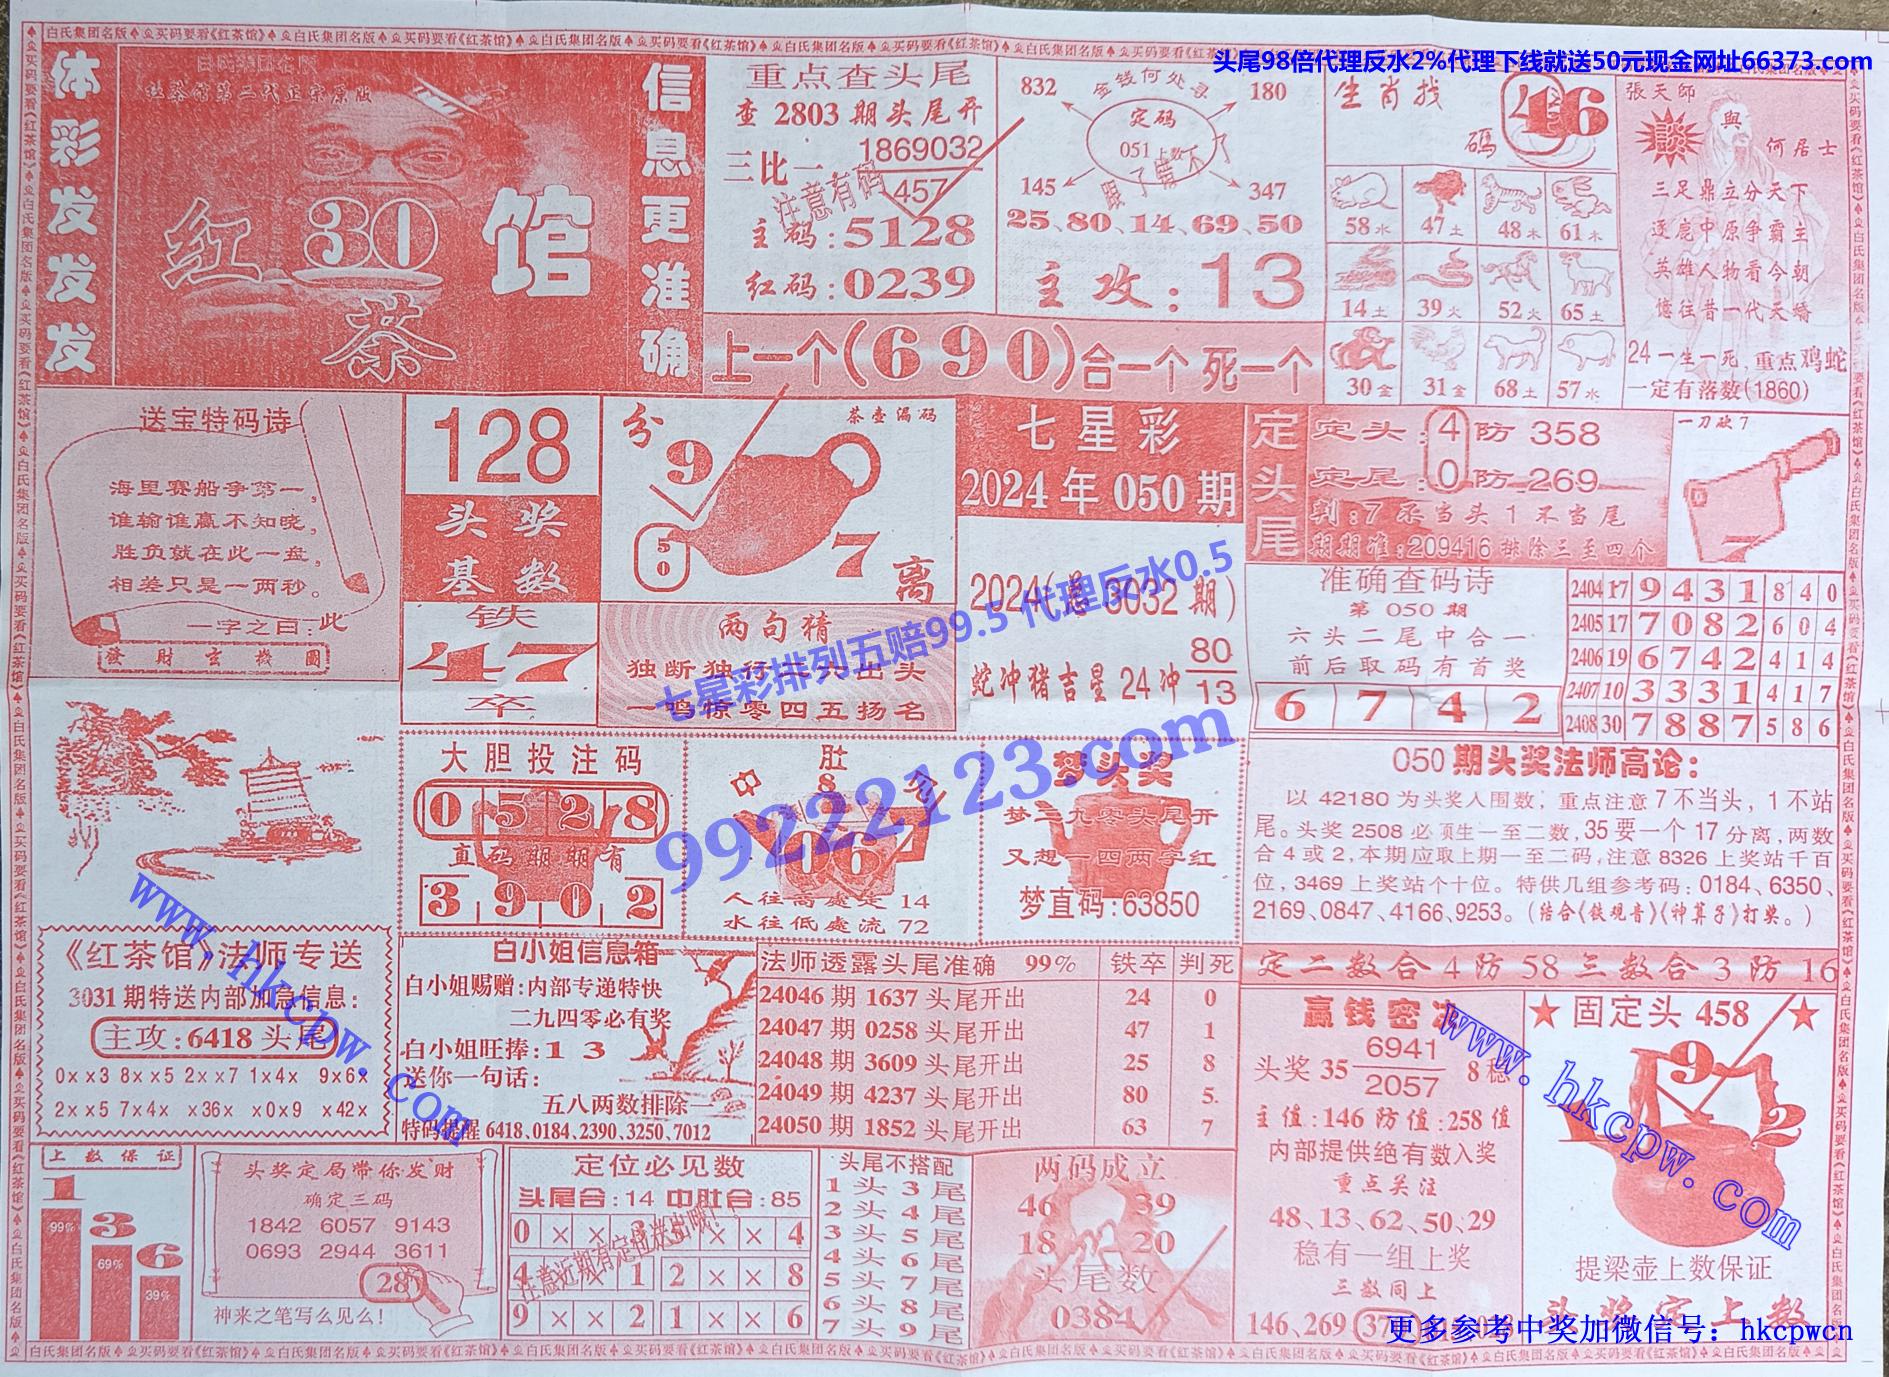 头尾98倍代理反水2%代理下线就送50元现金网址66373.com
体彩发发发
红茶馆第二代正宗原版
红 30 馆
茶
信息更准确
重点查头尾
查 2803 期头尾开
三比一 1869032
457
注意有码
主码:5128
红码:0239
金钱何处寻
832 180
定码
051上数
145 347
跟了错不了
25、80、14、69、50
主攻:13
上一个(690)合一个 死一个
生肖找码 46
58水 47土 48木 61木
14土 39火 52火 65土
30金 31金 68土 57水
張天師
談 與
何居士
三足鼎立分天下
逐鹿中原争霸主
英雄人物看今朝
憶往昔一代天嬌
24一生一死,重点鸡蛇
一定有落数(1860)
送宝特码诗
海里赛船争第一,
谁输谁赢不知晓,
胜负就在此一盘,
相差只是一两秒。
一字之曰:此
發財玄機圖
128
头奖
基数
铁
47
卒
分 茶壶漏码
9
50
7 离
两句精
独断独行二六出头
一鸣惊零四五扬名
七星彩
2024年050期
2024(总3032期)
蛇冲猪吉星24冲 80
13
七星彩排列五赔99.5 代理反水0.5
99222123.com
定头尾
定头:4防358
定尾:0防269
判:7不当头1不当尾
期期准:209416排除三至四个
一刀砍7
7
准确查码诗
第050期
六头二尾中合一
前后取码有首奖
6 7 4 2
2404 17 9 4 3 1 8 4 0
2405 17 7 0 8 2 6 0 4
2406 19 6 7 4 2 4 1 4
2407 10 3 3 3 1 4 1 7
2408 30 7 8 8 7 5 8 6
大胆投注码
0 5 2 8
直码期期有
3 9 0 2
肚
中 8 合
06
人往高處走 14
水往低處流 72
梦头奖
梦二九零头尾开
又想一四两字红
梦直码:63850
050期头奖法师高论:
以42180为头奖入围数;重点注意7不当头,1不站
尾。头奖2508必须生一至二数,35要一个17分离,两数
合4或2,本期应取上期一至二码,注意8326上奖站千百
位,3469上奖站个十位。特供几组参考码:0184、6350、
2169、0847、4166、9253。(结合《铁观音》《神算子》打奖。)
《红茶馆》法师专送
3031期特送内部加急信息:
主攻:6418头尾
0××3 8××5 2××7 1×4× 9×6×
2××5 7×4× ×36× ×0×9 ×42×
www.hkcpw.com
白小姐信息箱
白小姐赐赠:内部专递特快
二九四零必有奖
白小姐旺捧:13
送你一句话:
五八两数排除一
特码提醒 6418、0184、2390、3250、7012
法师透露头尾准确 99% 铁卒 判死
24046期1637头尾开出 24 0
24047期0258头尾开出 47 1
24048期3609头尾开出 25 8
24049期4237头尾开出 80 5
24050期1852头尾开出 63 7
定二数合4防58三数合3防16
赢钱密决
头奖35 6941
2057 8稳
主值:146防值:258值
内部提供绝有数入奖
重点关注
48、13、62、50、29
稳有一组上奖
三数同上
146、269
★固定头458★
9
2
www.hkcpw.com
提梁壶上数保证
头奖定上数
上数保证
1 99%
3 69%
6 39%
头奖定局带你发财
确定三码
1842 6057 9143
0693 2944 3611
28
神来之笔写么见么!
定位必见数
头尾合:14 中肚合:85
0 × × 3 × × 4
4 × 1 2 × × 8
9 × × 2 1 × × 6
头尾不搭配
1头3尾
2头4尾
3头5尾
4头6尾
5头7尾
6头8尾
7头9尾
两码成立
46 39
18 20
头尾数
0384
更多参考中奖加微信号：hkcpwcn
白氏集团名版♠买码要看《红茶馆》